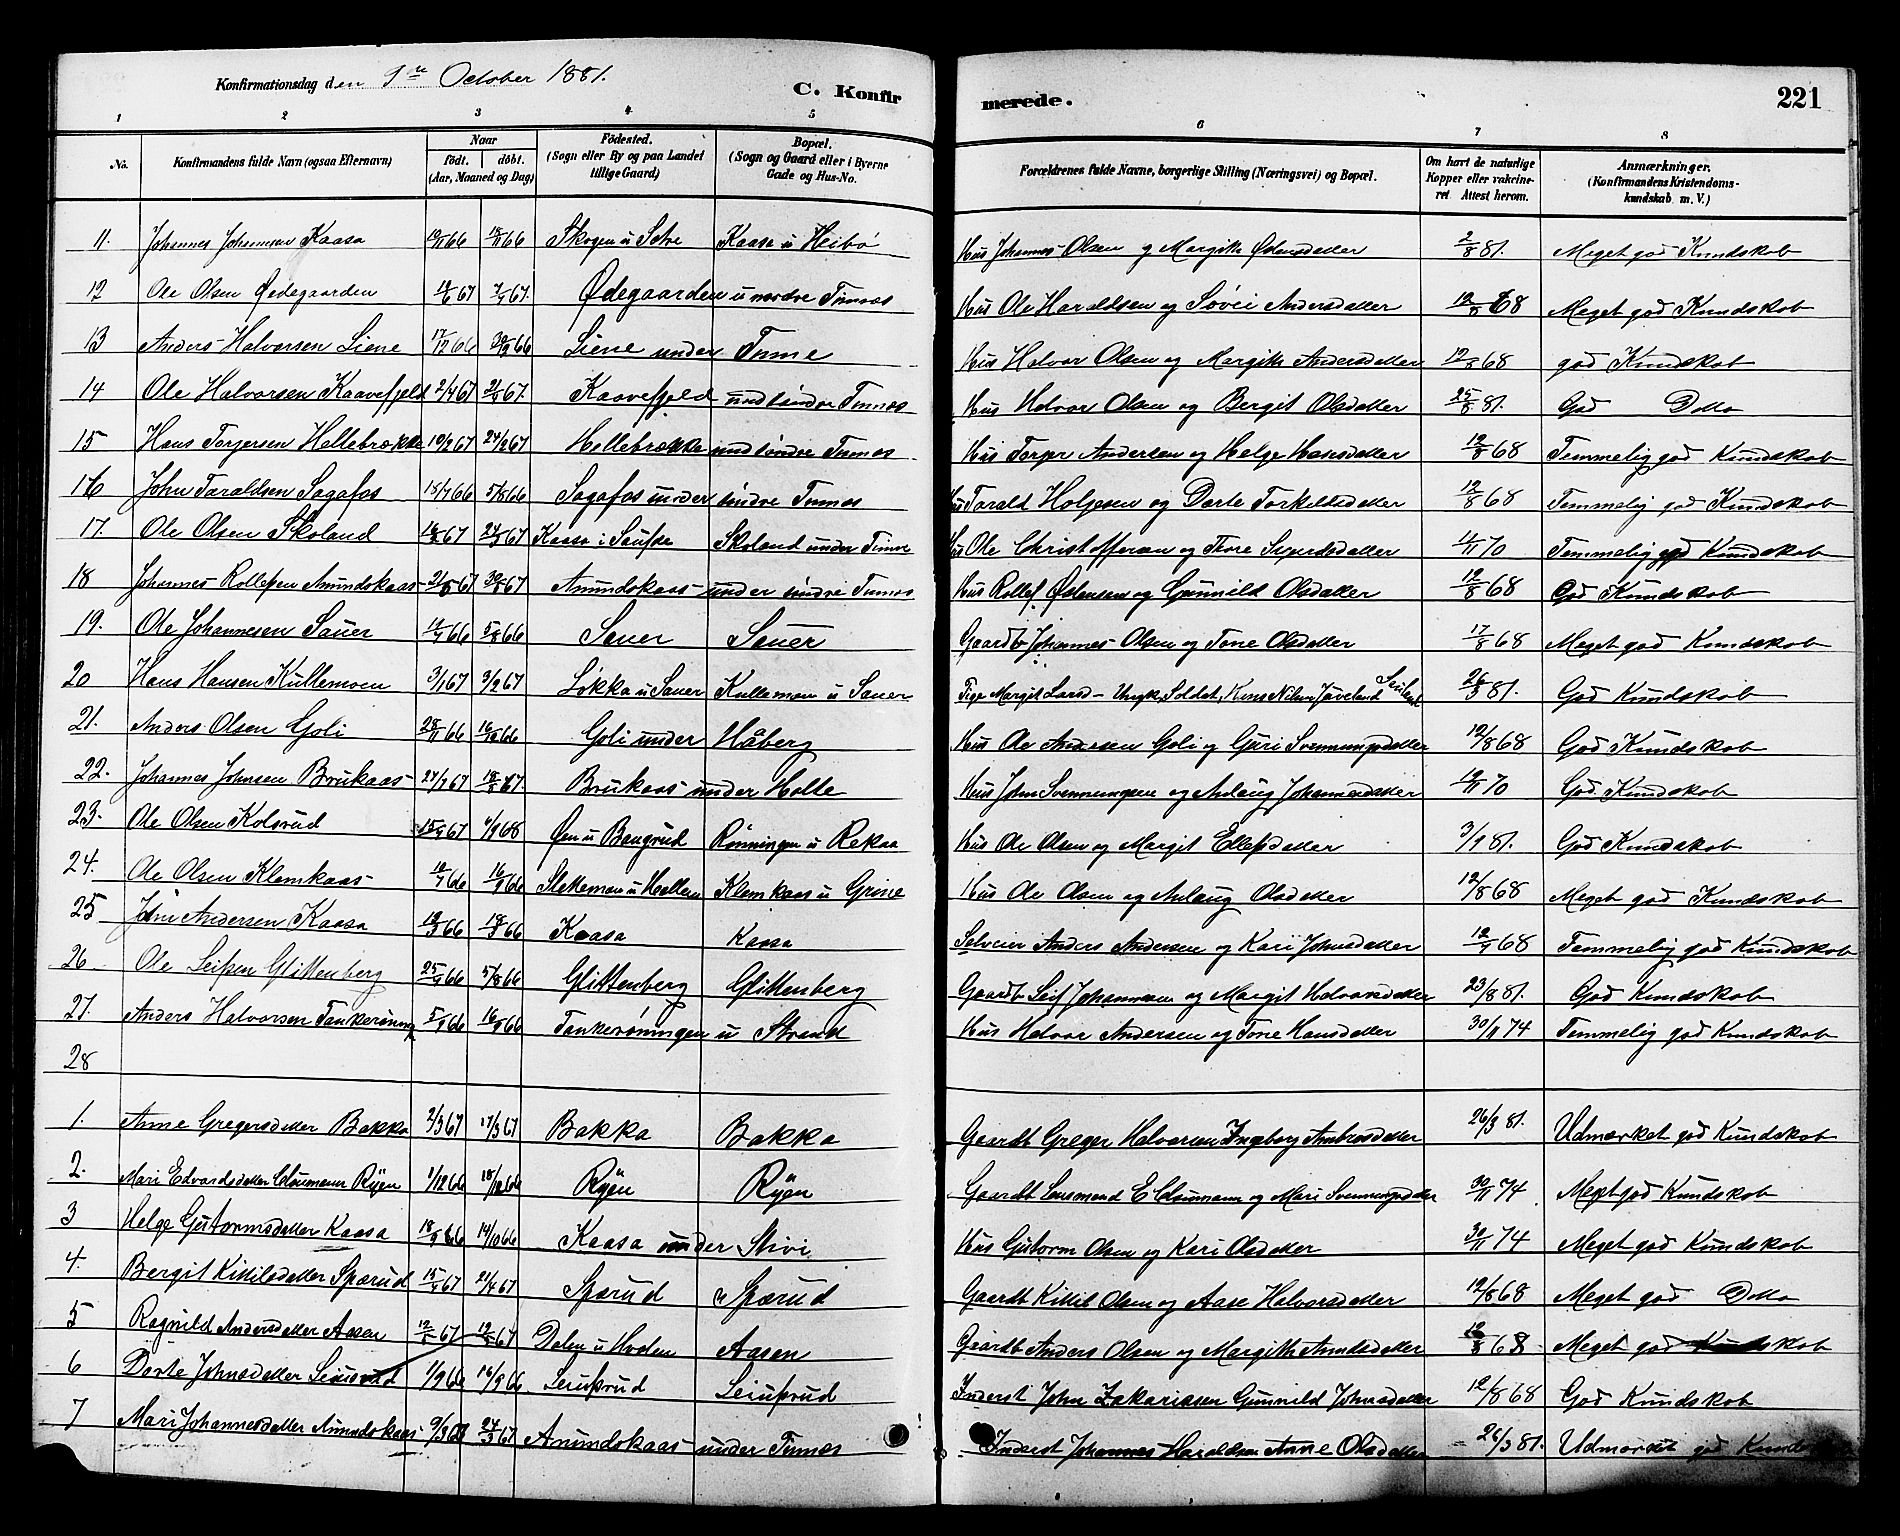 Konfirmationsdag den 9de October 1881. C. Konfirmerede. 221
1 2 3 4 5 6 7 8
No. Konfirmandens fulde Navn (ogsaa Efternavn) Naar födt. döbt. (Aar, Maaned og Dag) Födested. (Sogn eller By og paa Landet tillige Gaard) Bopæl. (Sogn og Gaard eller i Byerne Gade og Hus-No. Forældrenes fulde Navne, borgerlige Stilling (Næringsvei) og Bopæl. Om havt de naturlige Kopper eller vakcineret Attest herom. Anmærkninger. (Konfirmandens Kristendomskundskab m. V.)
11. Johannes Johannesen Kaasa 66 18/11 66 Skogen u Kaasa u Heibö Hus Johannes Olsen g Margith 2/8 81. Meget god Kundskab
12 Ole Olsen Ödegaarden 67 67. Ödegaarden u nordre Tinnæs Hus Ole Haraldsen og Andersdatter 12/8 68 Meget god Kundskab
13 Anders Halvorsen Liene 17/12 66 66 Liene under Tinne Hus Halvor Olsen og Margith Andersdatter 12/8 68 god Kundskab
14 Ole Halvorsen Kaavefjeld 2/4 67 21/4 67. Kaavefjeld und söndre Tinnæs Hus Halvor Olsen og Bergit Olsdatter 25/8 81. God Dotto
15 Hans Torjersen Hellebrækka 10/2 67 24/2 67 Hellebrækka und söndre Tinnæs Hus Torger Andersen og Helge Hansdatter 12/8 68 Temmelig god Kundskab
16 John Taraldsen Sagafos 18/7 66 5/8 66 Sagafos under söndre Tinnæs Hus Tarald Holjesen og Dorte Torkildsdatter 12/8 68 Temmelig god Kundskab
17. Ole Olsen Skoland 67 24/3 67 Kaasa i Saufde Skoland under Tinne Hus Ole Christoffersen og Tone 11/11 70 Temmelig god Kundskab
18 Johannes Rollefsen Amundskaas 67 67 Amundskaas under söndre Tinnæs Hus Rollef Östensen og Gunnild Olsdatter 12/8 68 God Kundskab
19. Ole Johannesen Sauer 66 5/8 66 Sauer Sauer Gaardb Johannes Olsen og Tone Olsdatter 17/8 68 Meget god Kundskab
20 Hans Hansen Kullemoen 3/1 67 3/2 67 Lökka u Sauer Kullemoen u Sauer Margit Larsd - Ungk, Soldat, Hans Nilsen 26/3 81. God Kundskab
21. Anders Olsen Goli 28/11 66 16/12 66 Goli under Håberg Hus Ole Andersen Goli og Guri Svennungsdatter 12/8 68 God Kundskab
22. Johannes Johnsen Brukaas 27/7 67 67. Brukaas under Holte Hus John Svennungsen og Anlaug Johannesdatter 70 God Kundskab
23. Ole Olsen Kolsrud 67 68 Öen u Baugrud Rönningen u Rekaa Hus Ole Olsen og Margit Ellefsdatter 3/9 81. God Kundskab
24. Ole Olsen Klemkaas 66 66 Stekemoen u Hellem Klemkaas u Grine Hus Ole Olsen og Anlaug Olsdatter 12/8 68 Meget god Kundskab
25 John Andersen Kaasa 66 18/3 66 Kaasa Kaasa Selveier Anders Andersen og Kari Johnsdatter 68 Temmelig god Kundskab
26 Ole Leifsen Glittenberg 66 5/8 66 Glittenberg Glittenberg Gaardb Leif Johannesen og Margit Halvorsdatter 23/8 81. God Kundskab
27. Anders Halvorsen Tankeröning 66 66 Tankeröningen u Strand Hus Halvor Andersen og Tone Hansdatter 30/11 74 Temmelig god Kundskab
28
1. Anne Gregersdatter Bakka 2/3 67 17/3 67 Bakka Bakka Gaardb Greger Halvorsen Ingeborg 26/3 81. Udmærket god Kundskab
2. Mari Edvardsdatter Ryen 1/12 66 66 Ryen Ryen Gaardb Lensmand E og Mari Svennungsdatter 30/11 74 Meget god Kundskab
3 Helge Guttormsdatter Kaasa 18/9 66 14/10 66 Kaasa under Stivi Hus Guttorm Olsen og Kari Olsdatter 30/11 74 Meget god Kundskab
4. Bergit Kittilsdatter Sperud 67 21/4 67 Sperud Sperud Gaardb Kittil Olsen og Aase Halvorsdatter 12/8 68 Meget god Dotto
5 Ragnild Andersdatter Aasen 67 67 Dalen u Hvalen Aasen Gaardb Anders Olsen og Margith 12/8 68 Meget god Kundskab
6 Dorte Johnsdatter 1/9 66 16/9 66 Leirusrud Leirusrud Inderst John Zakariasen Gunnild Johnsdatter 12/8 68 God Kundskab
7 Mari Johannesdatter Amundskaas 24/3 67 Amundskaas under Tinnæs Inderst Johannes Haraldsen Anne Olsdatter 26/3 81. Udmærket god Kundskab